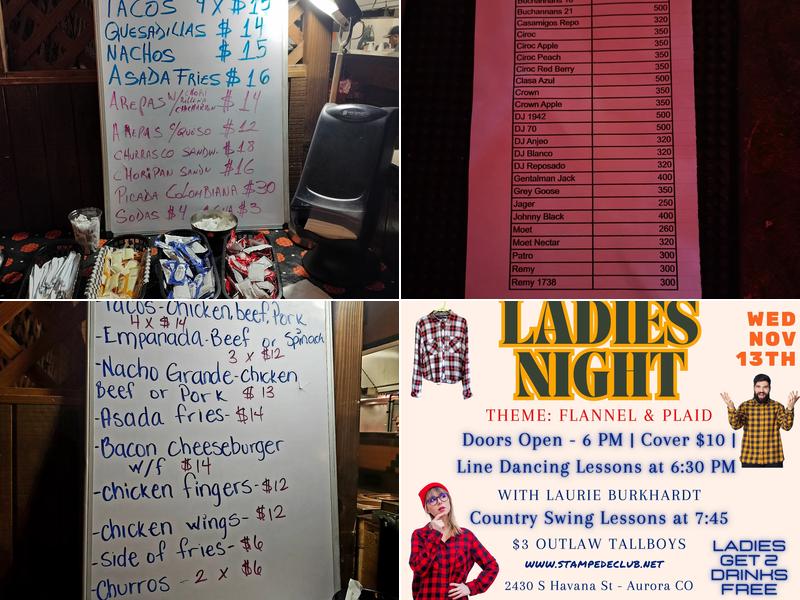 TACOS 4 X $15
QUESADILLAS $14
NACHOS $15
ASADA FRIES $16
AREPAS W/ $14
AREPAS C/QUESO $12
CHURRASCO SANDW. $18
CHORIPAN SANDW $16
PICADA COLOMBIANA $30
SODAS $4 AGUA $3
Buchannans 18
Buchannans 21 500
Casamigos Repo 320
Ciroc 350
Ciroc Apple 350
Ciroc Peach 350
Ciroc Red Berry 350
Clasa Azul 500
Crown 350
Crown Apple 350
DJ 1942 500
DJ 70 500
DJ Anjeo 320
DJ Blanco 320
DJ Reposado 320
Gentalman Jack 400
Grey Goose 350
Jager 250
Johnny Black 400
Moet 260
Moet Nectar 320
Patro 300
Remy 300
Remy 1738 300
Tacos-Chicken, beef, Pork
4 X $14
-Empanada-Beef or Spinach
3 x $12
-Nacho Grande-chicken
Beef or Pork $13
-Asada fries-$14
-Bacon Cheeseburger
w/f $14
-chicken fingers-$12
-chicken wings-$12
-side of fries-$6
-Churros - 2 x $6
LADIES
NIGHT
WED
NOV
13TH
THEME: FLANNEL & PLAID
Doors Open - 6 PM | Cover $10 |
Line Dancing Lessons at 6:30 PM
WITH LAURIE BURKHARDT
Country Swing Lessons at 7:45
$3 OUTLAW TALLBOYS
WWW.STAMPEDECLUB.NET
2430 S Havana St - Aurora CO
LADIES
GET 2
DRINKS
FREE